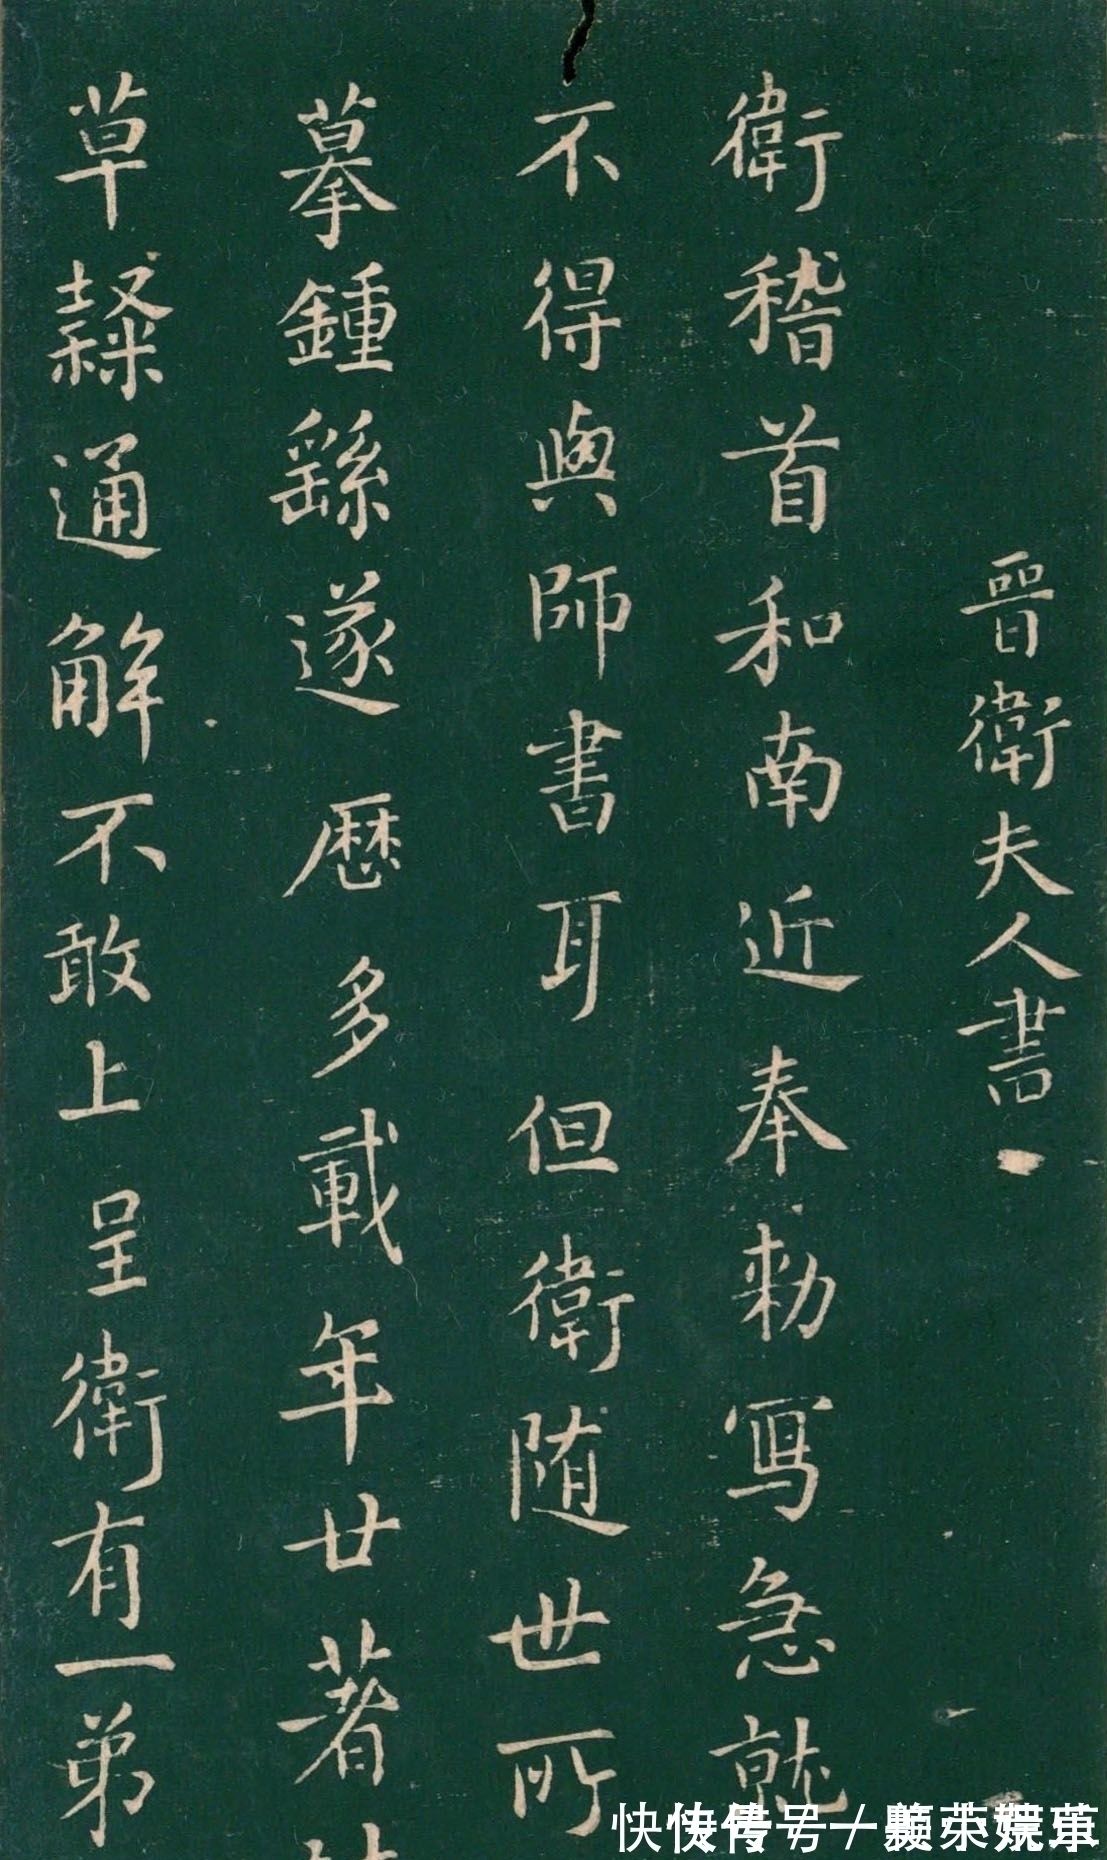 晉衛夫人書
衛稽首和南近奉勅寫急就
不得與師書耳但衛随世所
摹鍾繇遂歷多載年廿著
草隸通解不敢上呈衛有一弟
快传号